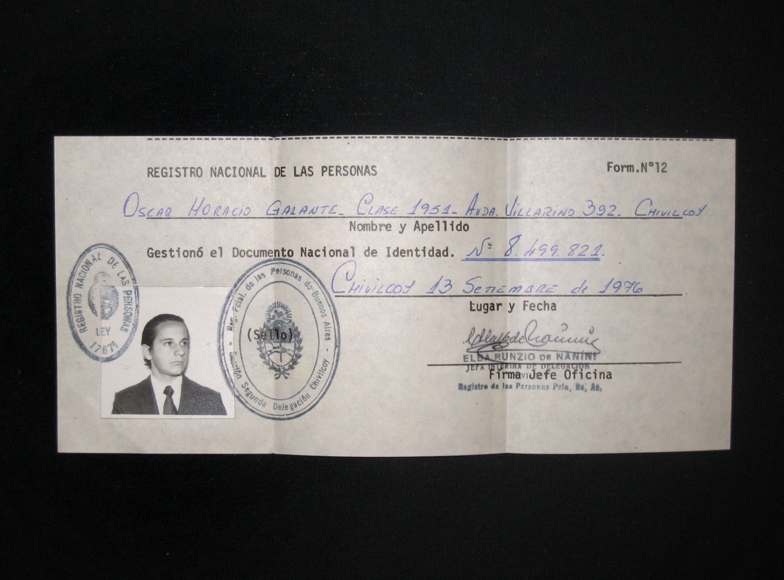 REGISTRO NACIONAL DE LAS PERSONAS
Form.N°12
OSCAR HORACIO GALANTE_ CLASE 1951- AVDA. VILLARINO 392. CHIVILCOY
Nombre y Apellido
Gestionó el Documento Nacional de Identidad. Nº 8.499.821.
CHIVILCOY 13 SETIEMBRE de 1976
Lugar y Fecha
REGISTRO NACIONAL DE LAS PERSONAS
LEY
17671
Reg. Pcial. de las Personas de Buenos Aires
Sección Segunda Delegación Chivilcoy
(Sello)
ELBA RUNZIO de NANINI
JEFA INTERINA DE DELEGACION
Firma Jefe Oficina
Registro de las Personas Pcia. Bs. As.